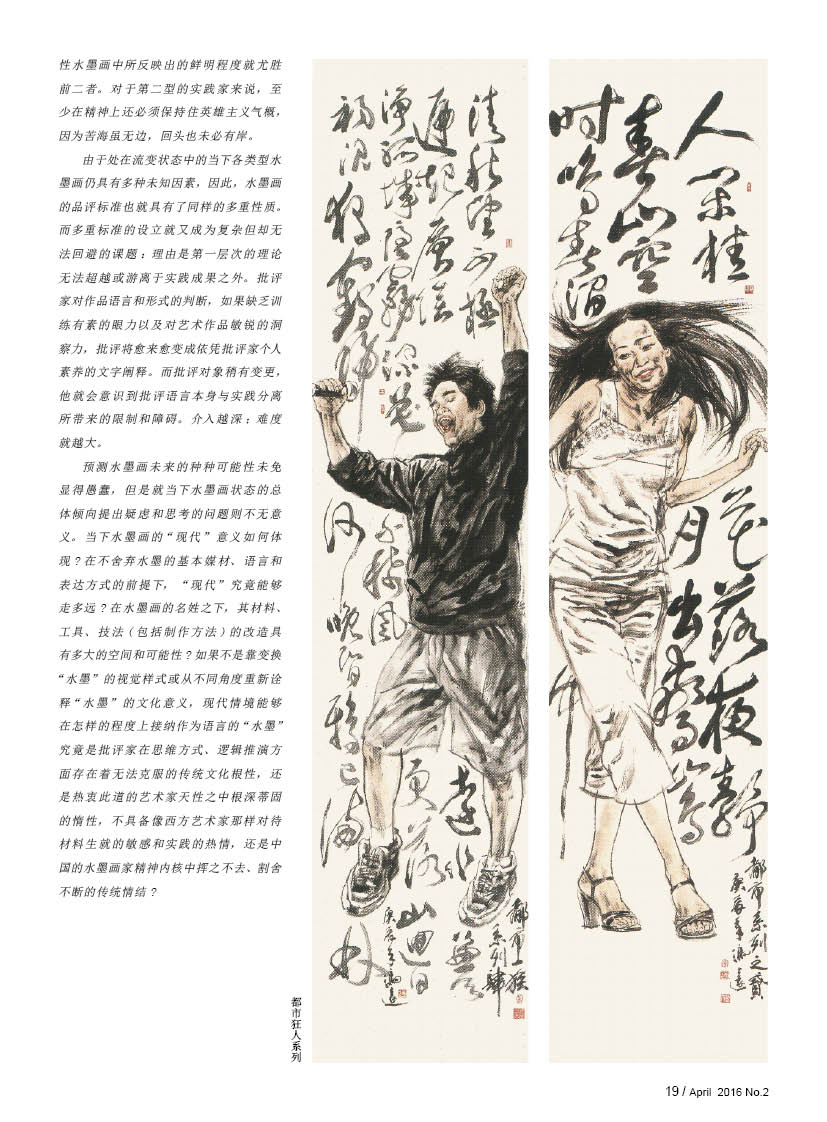 性水墨画中所反映出的鲜明程度就尤胜
前二者。对于第二型的实践家来说，至
少在精神上还必须保持住英雄主义气概，
因为苦海虽无边，回头也未必有岸。
由于处在流变状态中的当下各类型水
墨画仍具有多种未知因素，因此，水墨画
的品评标准也就具有了同样的多重性质。
而多重标准的设立就又成为复杂但却无
法回避的课题：理由是第一层次的理论
无法超越或游离于实践成果之外。批评
家对作品语言和形式的判断，如果缺乏训
练有素的眼力以及对艺术作品敏锐的洞
察力，批评将愈来愈变成依凭批评家个人
素养的文字阐释。而批评对象稍有变更，
他就会意识到批评语言本身与实践分离
所带来的限制和障碍。介入越深：难度
就越大。
预测水墨画未来的种种可能性未免
显得愚蠢，但是就当下水墨画状态的总
体倾向提出疑虑和思考的问题则不无意
义。当下水墨画的“现代”意义如何体
现？在不舍弃水墨的基本媒材、语言和
表达方式的前提下，“现代”究竟能够
走多远？在水墨画的名姓之下，其材料、
工具、技法（包括制作方法）的改造具
有多大的空间和可能性？如果不是靠变换
“水墨”的视觉样式或从不同角度重新诠
释“水墨”的文化意义，现代情境能够
在怎样的程度上接纳作为语言的“水墨”
究竟是批评家在思维方式、逻辑推演方
面存在着无法克服的传统文化根性，还
是热衷此道的艺术家天性之中根深蒂固
的惰性，不具备像西方艺术家那样对待
材料生就的敏感和实践的热情，还是中
国的水墨画家精神内核中挥之不去、割舍
不断的传统情结？
清秋望不极
遥起层阴
远水兼天
净孤城隐雾深
叶稀风
更落山迥日
初沉独鹤归
何晚昏鸦已满林
庚辰年冯远
人闲桂
花落夜静
春山空
月出惊山鸟
时鸣春涧
中
都市系列之贰
庚辰年冯远
都市狂人系列
19 / April 2016 No.2